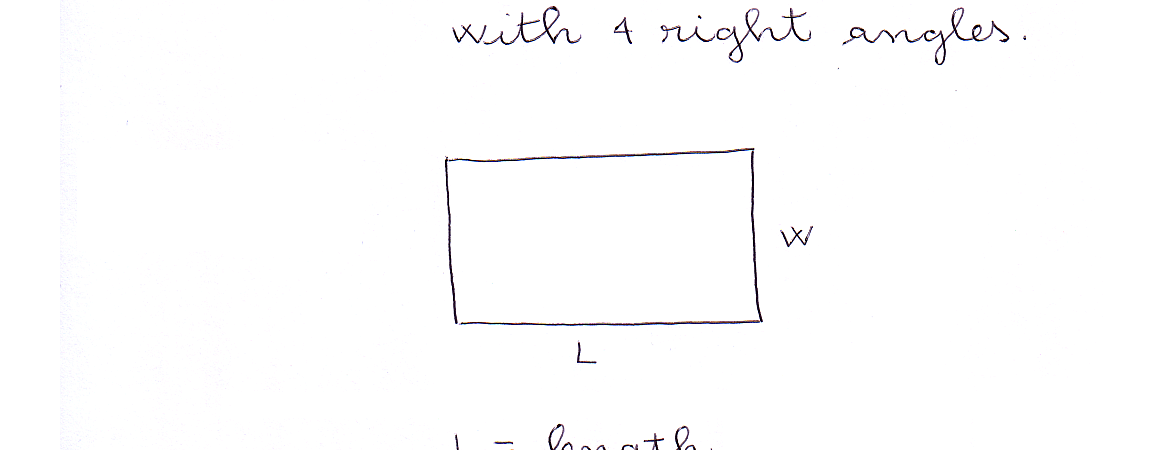 with 4 right angles.
W
L
L = length